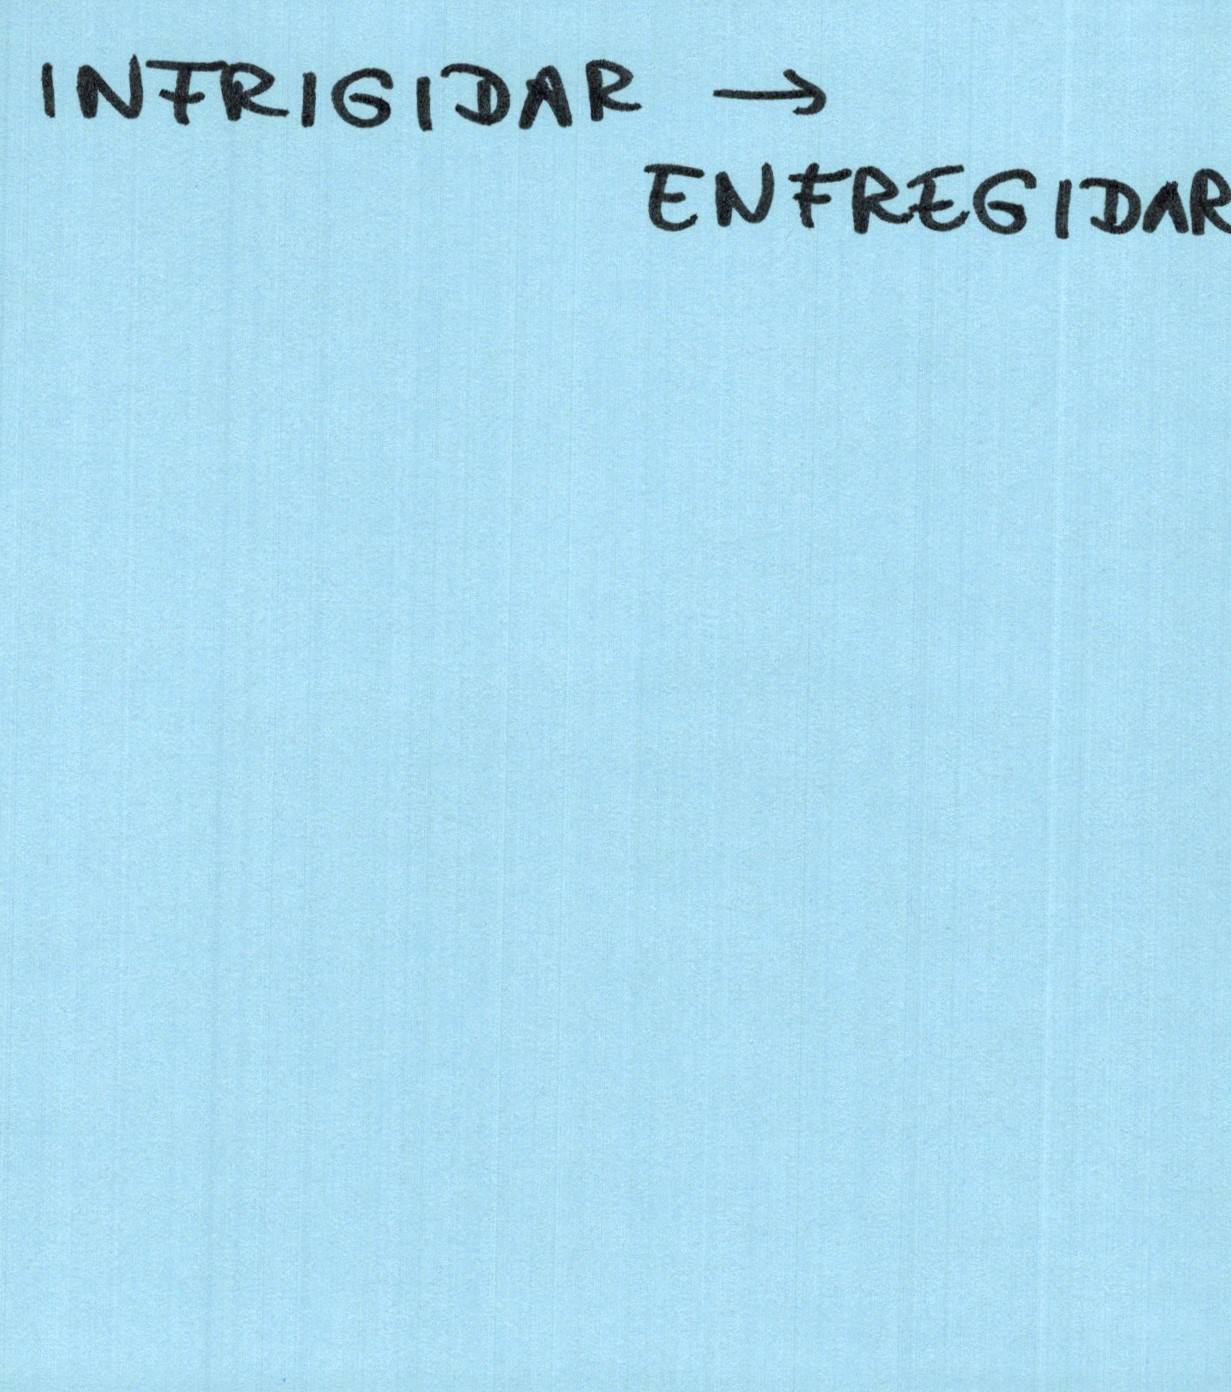 INFRIGIDAR →
ENFREGIDAR